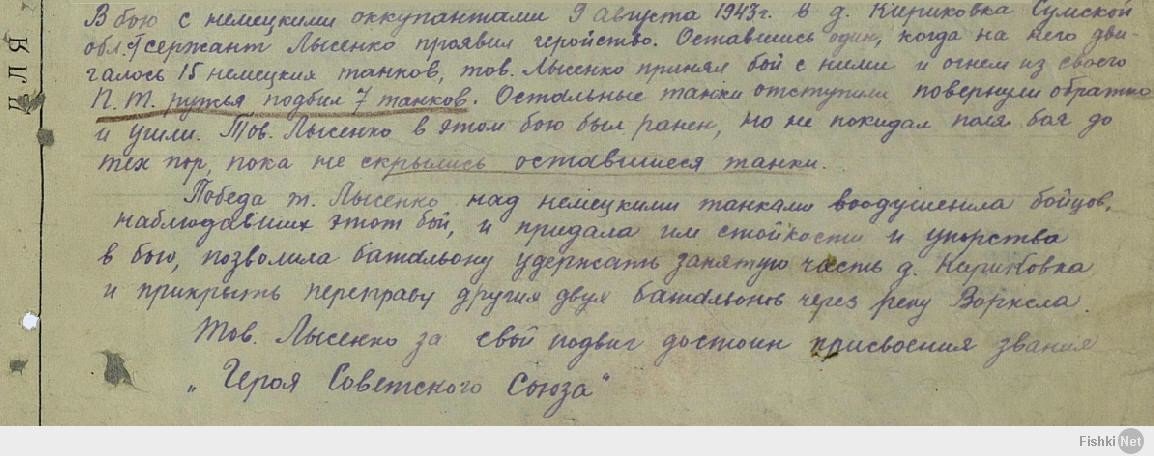 В бою с немецкими оккупантами 9 августа 1943г. в д. Кириковка Сумской
обл. сержант Лысенко проявил геройство. Оставшись один, когда на него дви-
галось 15 немецких танков, тов. Лысенко принял бой с ними и огнем из своего
П.Т. ружья подбил 7 танков. Остальные танки отступили повернули обратно
и ушли. Тов. Лысенко в этом бою был ранен, но не покидал поля боя до
тех пор, пока не скрылись оставшиеся танки.
Победа т. Лысенко над немецкими танками воодушевила бойцов,
наблюдавших этот бой, и придала им стойкости и упорства
в бою, позволила батальону удержать занятую часть д. Кириковка
и прикрыть переправу других двух батальонов через реку Ворксла.
Тов. Лысенко за свой подвиг достоин присвоения звания
„Героя Советского Союза"
ДЛЯ
Fishki Net